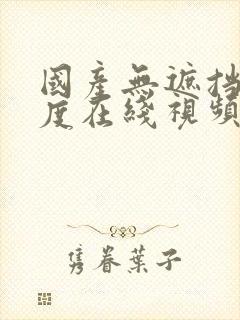 國產無遮挡
度在綫視頻
隽眷葉子